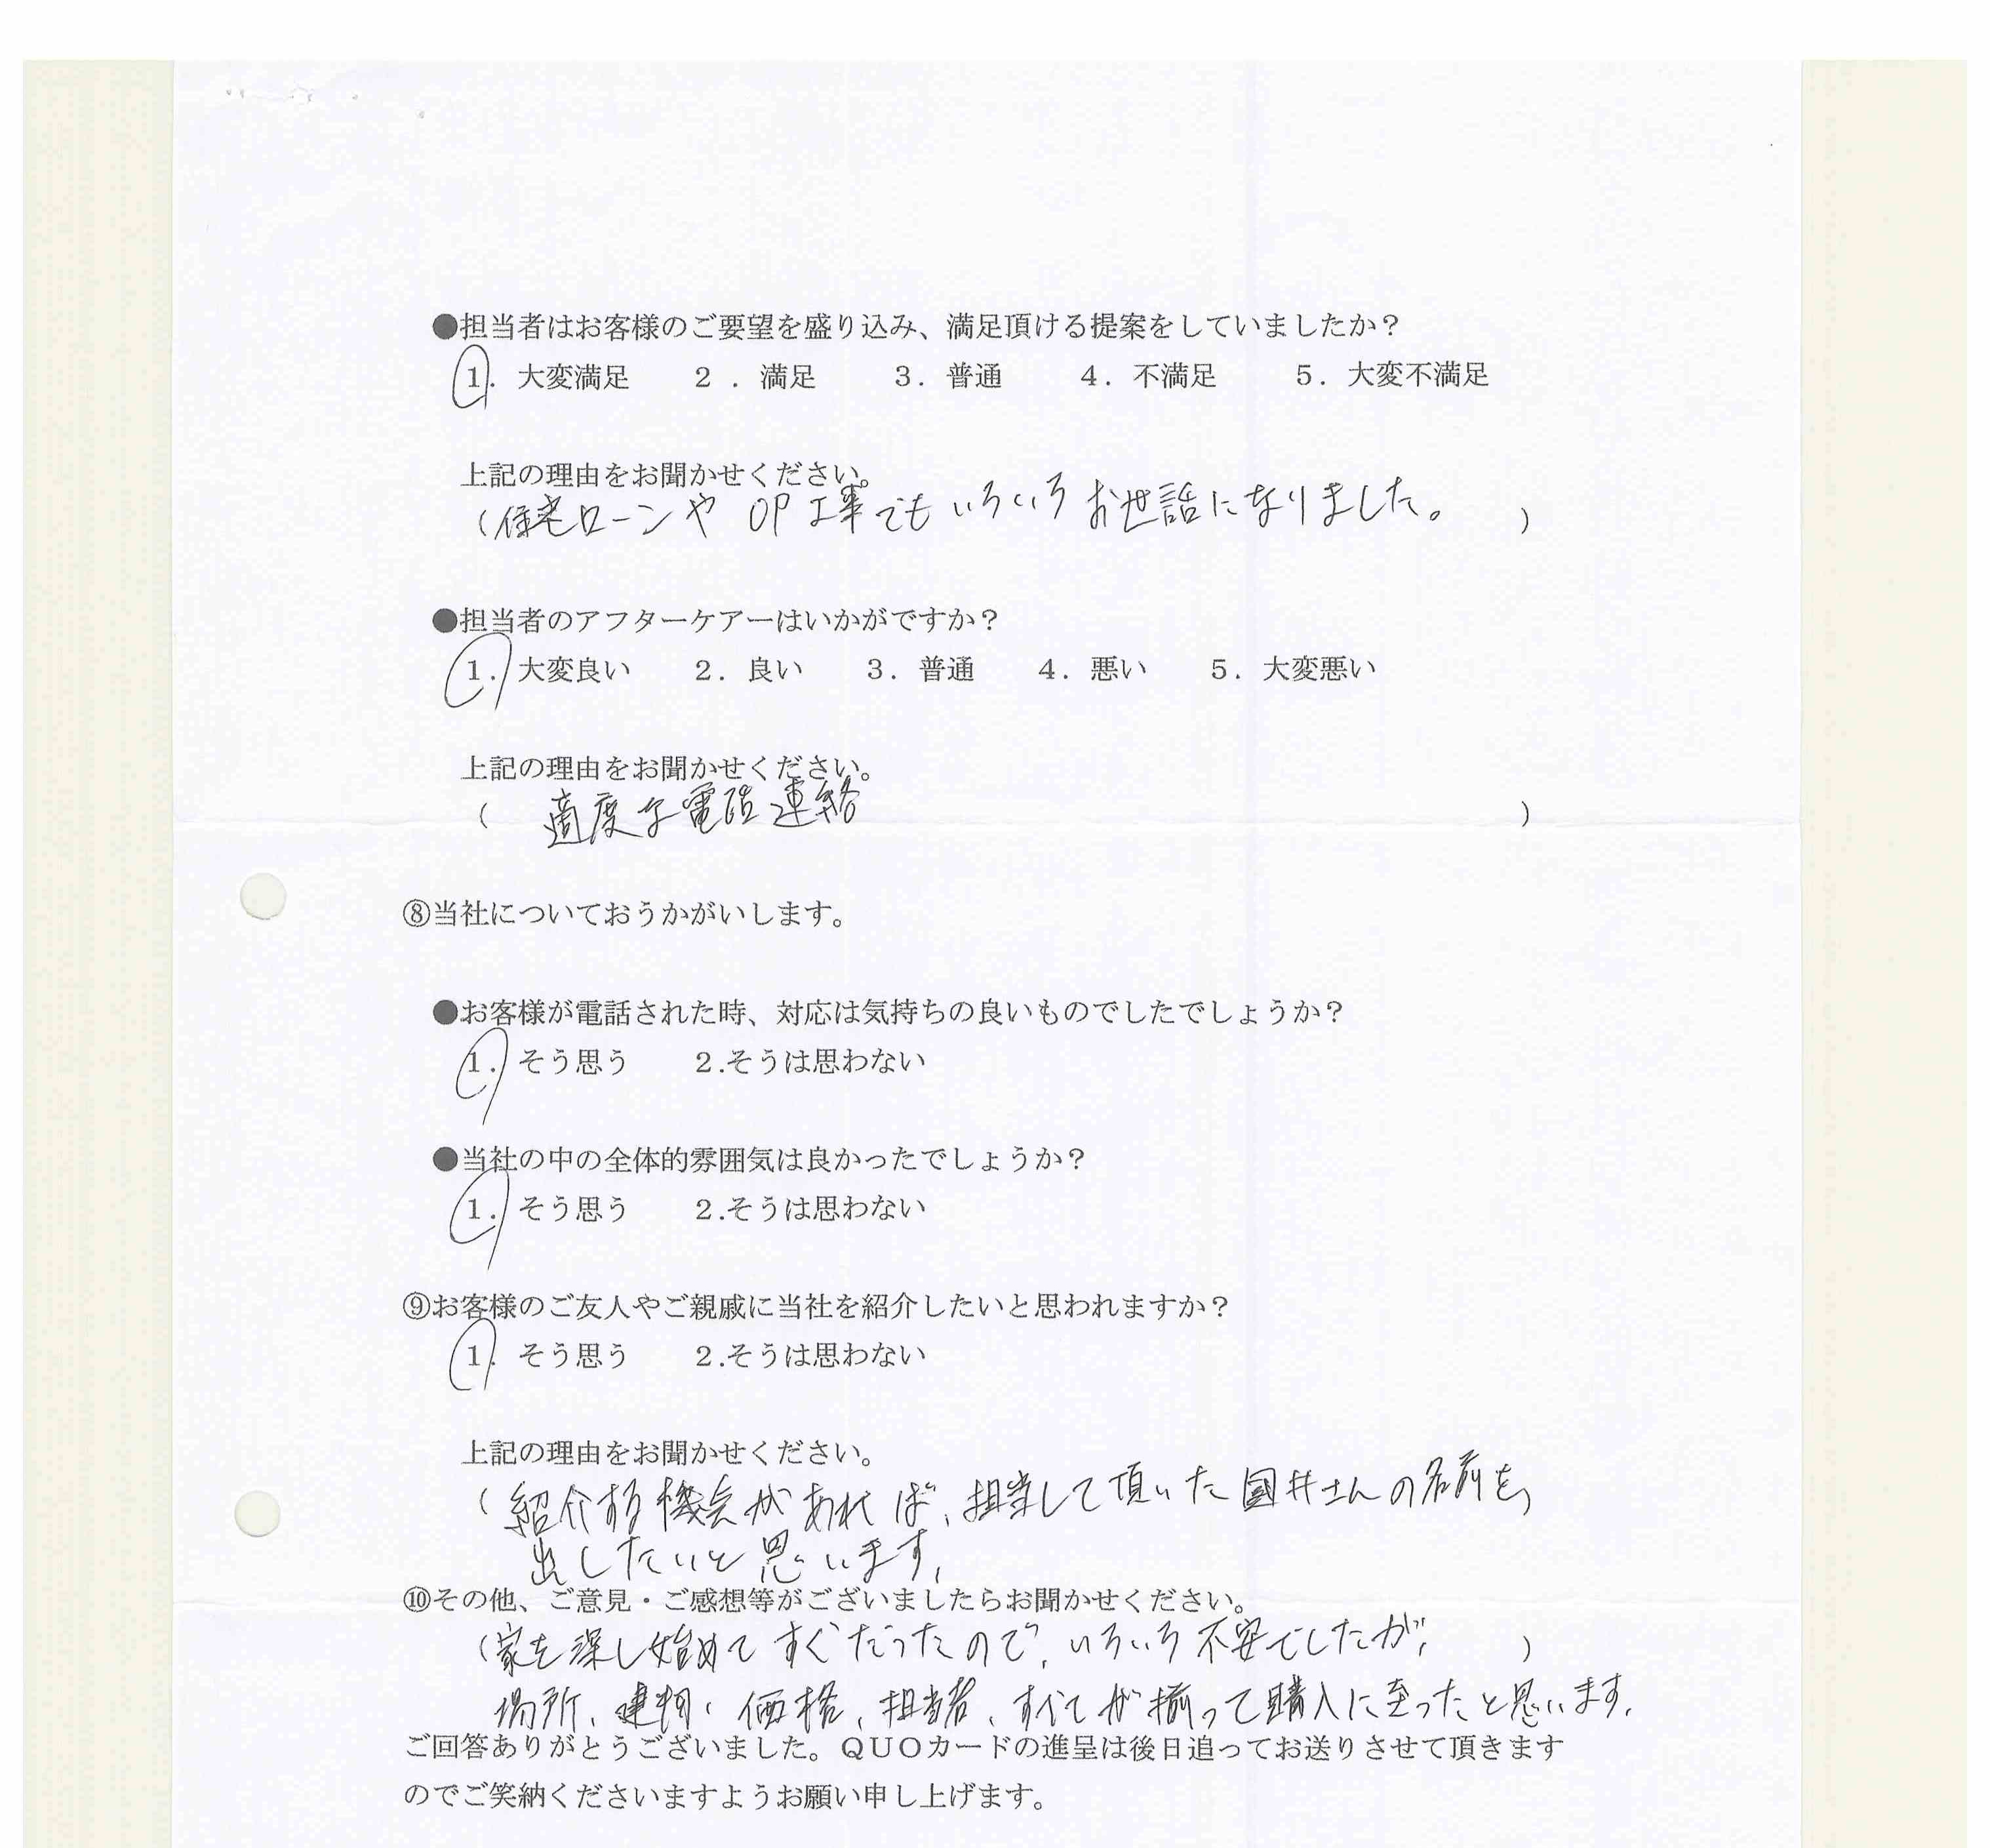 ●担当者はお客様のご要望を盛り込み、満足頂ける提案をしていましたか？
1．大変満足　2．満足　3．普通　4．不満足　5．大変不満足
上記の理由をお聞かせください。
（住宅ローンや OP工事でもいろいろお世話になりました。）
●担当者のアフターケアーはいかがですか？
1．大変良い　2．良い　3．普通　4．悪い　5．大変悪い
上記の理由をお聞かせください。
（適度な電話連絡）
⑧当社についておうかがいします。
●お客様が電話された時、対応は気持ちの良いものでしたでしょうか？
1．そう思う　2.そうは思わない
●当社の中の全体的雰囲気は良かったでしょうか？
1．そう思う　2.そうは思わない
⑨お客様のご友人やご親戚に当社を紹介したいと思われますか？
1．そう思う　2.そうは思わない
上記の理由をお聞かせください。
（紹介する機会があれば、担当して頂いた國井さんの名前を）
出したいと思います。
⑩その他、ご意見・ご感想等がございましたらお聞かせください。
（家を探し始めてすぐだったので、いろいろ不安でしたが、）
場所、建物、価格、担当者、すべてが揃って購入に至ったと思います。
ご回答ありがとうございました。QUOカードの進呈は後日追ってお送りさせて頂きます
のでご笑納くださいますようお願い申し上げます。